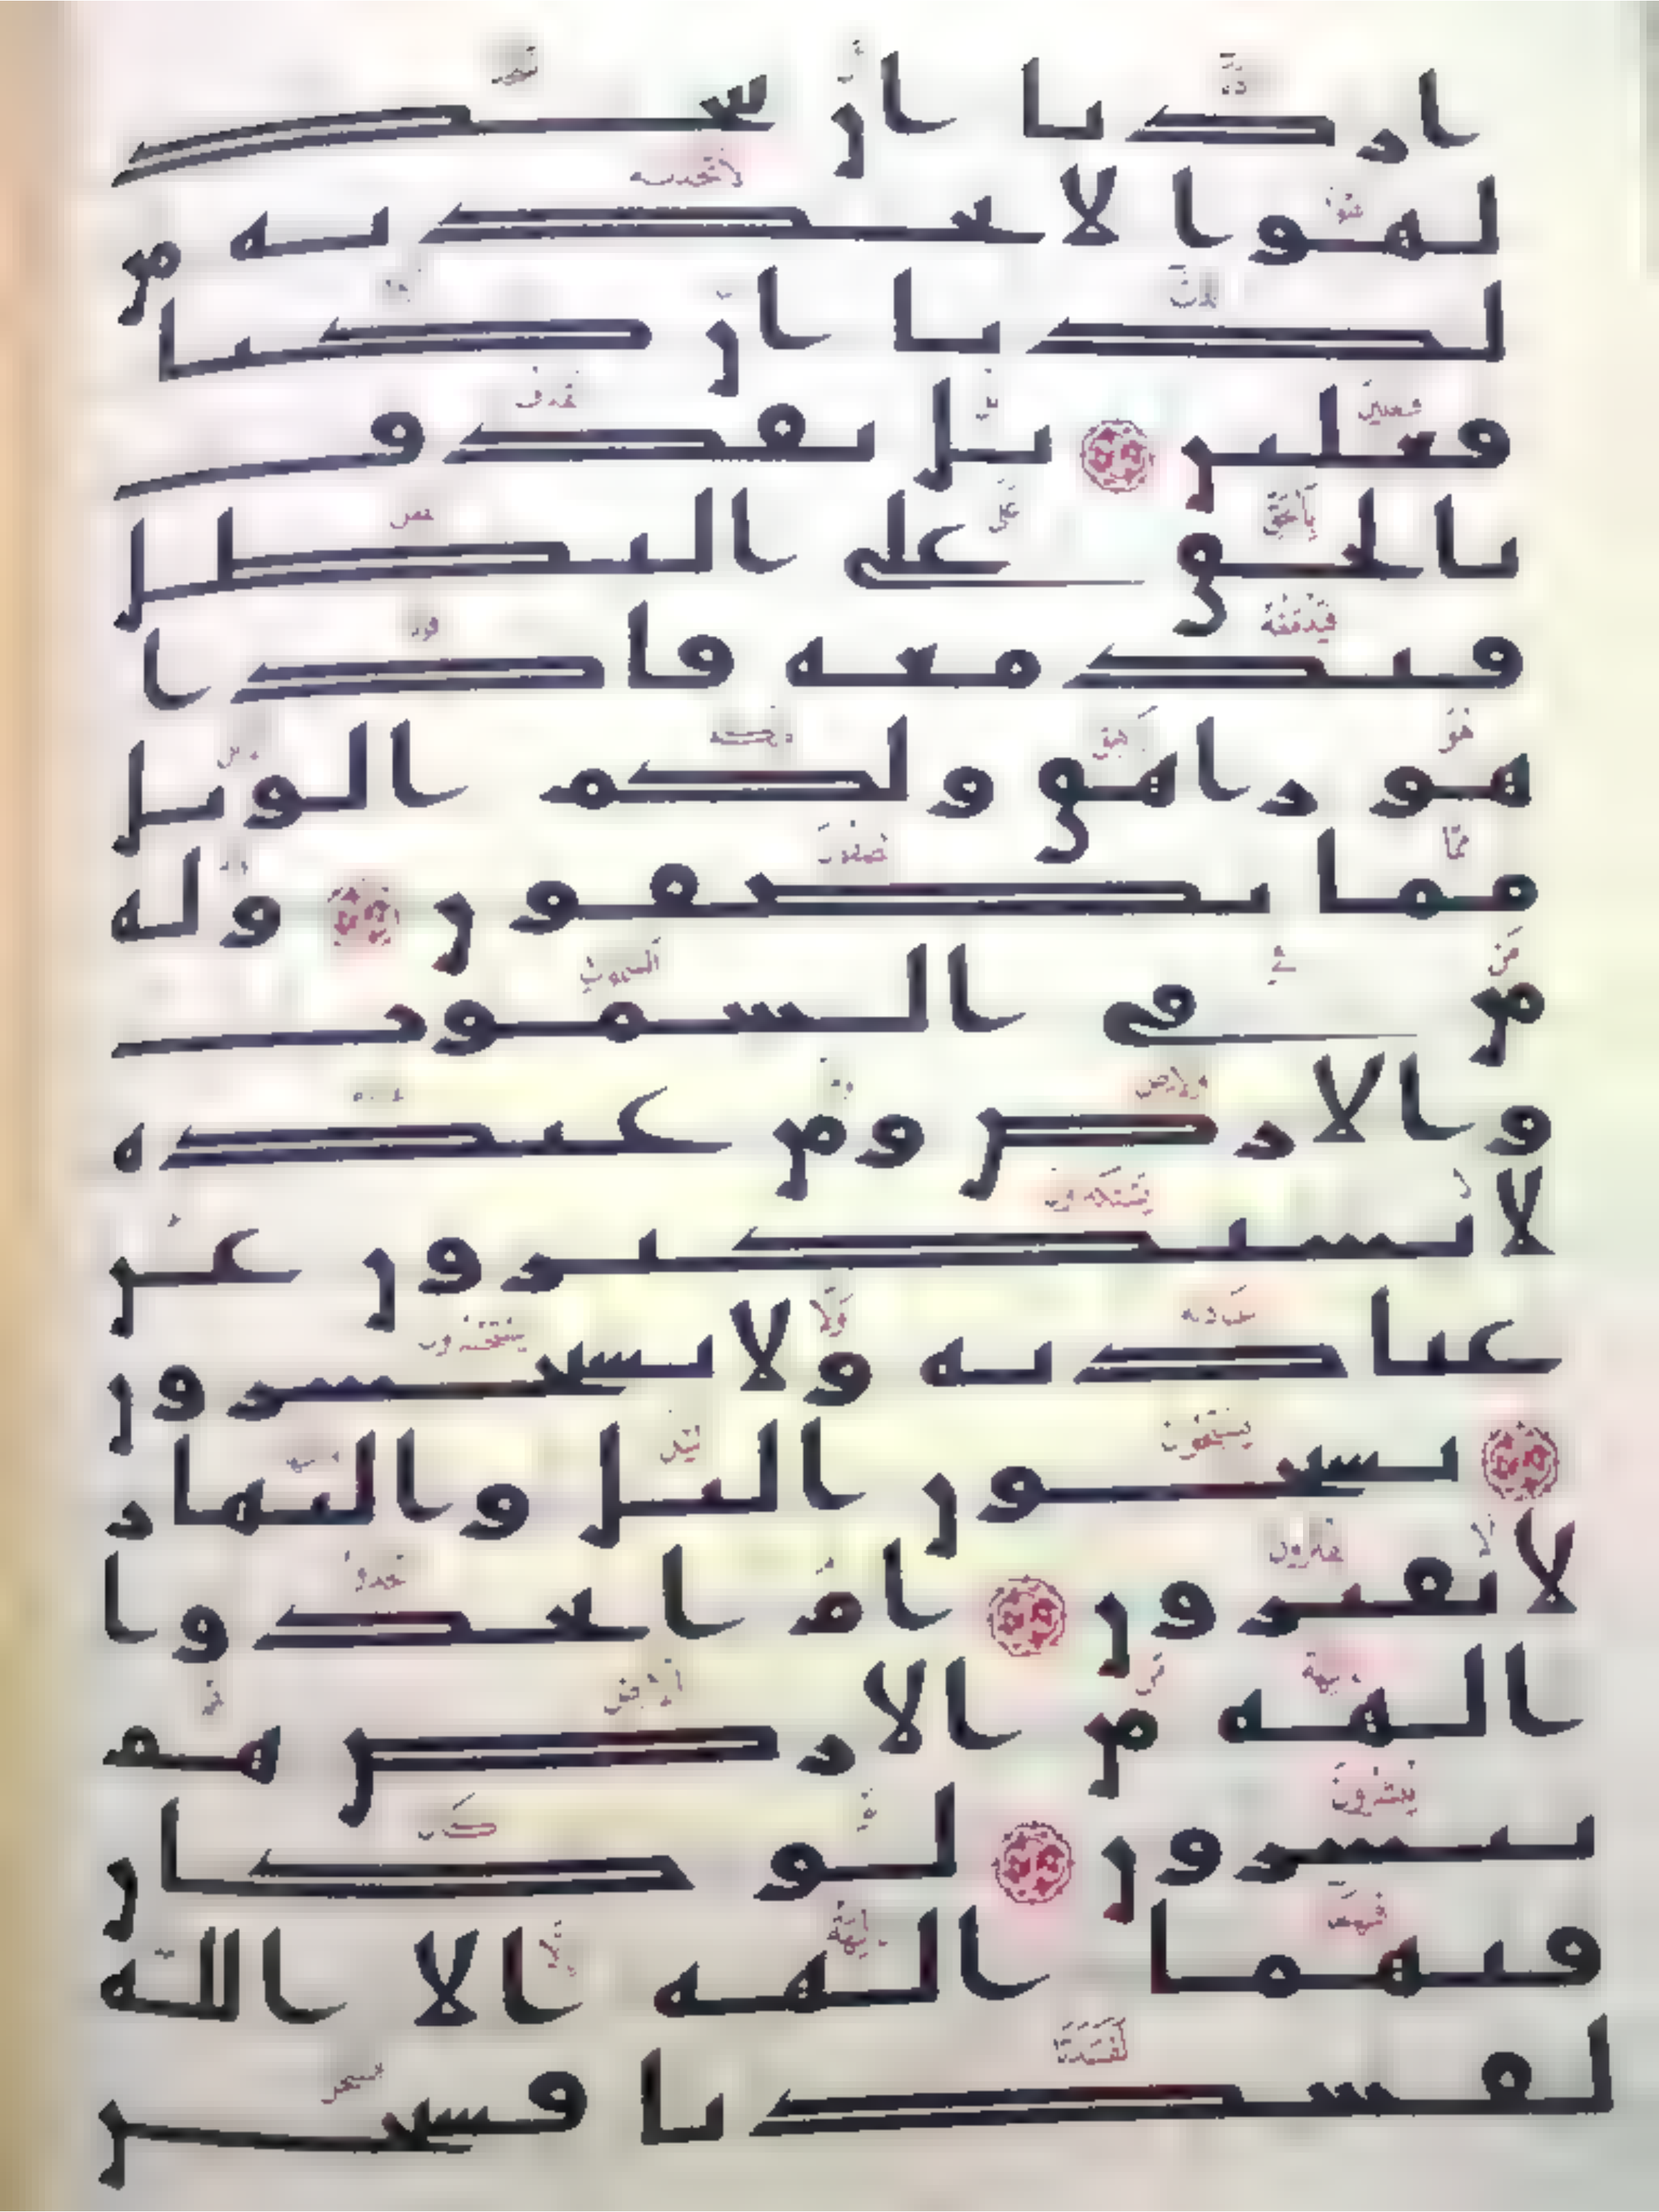 اردنا ان نتخذ
لهوا لاتخذنه من
لدنا ان كنا
فعلين بل نقذف
بالحق على البطل
فيدمغه فاذا
هو زاهق ولكم الويل
مما تصفون وله
من في السموت
والارض ومن عنده
لا يستكبرون عن
عبادته ولا يستحسرون
يسبحون اليل والنهار
لا يفترون ام اتخذوا
الهة من الارض هم
ينشرون لو كان
فيهما الهة الا الله
لفسدتا فسبحن